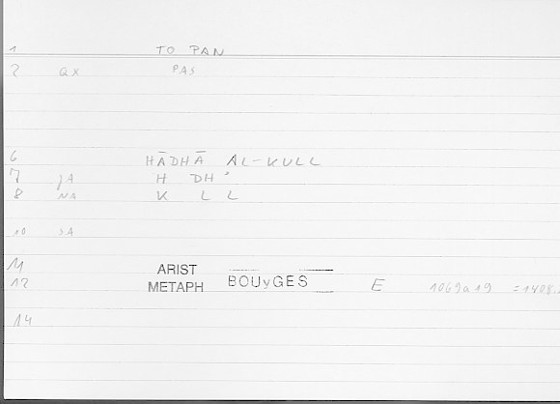 1 TO PAN
2 QX PAS
6 HĀDHĀ AL-KULL
7 JA H DH'
8 NA K L L
10 SA
11 ARIST
12 METAPH BOUyGES E 1069a19 =1408.
14